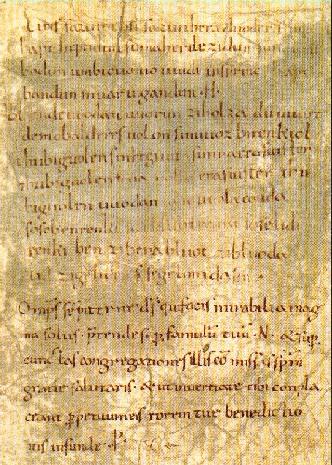 Eiris sazun idisi sazun heraduoder suma
hapt heptidun sumaheri lezidun suma
bodun umbicuonio uuidi insprinc hapt
bandun inuar uigandun. H.
Phol ende uuodan uuorun ziholza du uuart
demobalderes uolon sinuuoz birenkict
thubiguolen sinhtgunt sunnaerasuister
thubiguolen uolla erasuister thu
biguolen uuodan uuolaconda
sosebenrenki soselidi
renki ben zibena bluot zibluoda
lid zigeliden sosegelimida sin.
Omps sēpitrne ds̄ qui facis mirabilia mag
na solus. p̄tende sup̱ famulū tuū .N. & sup̱
cunctas congregationes illi cōmissas sp̄m
gratię salutaris. & ut inueritate tibi compla
ceant p̱petuum eis rorem tuę benedictio
nis infunde. p̱